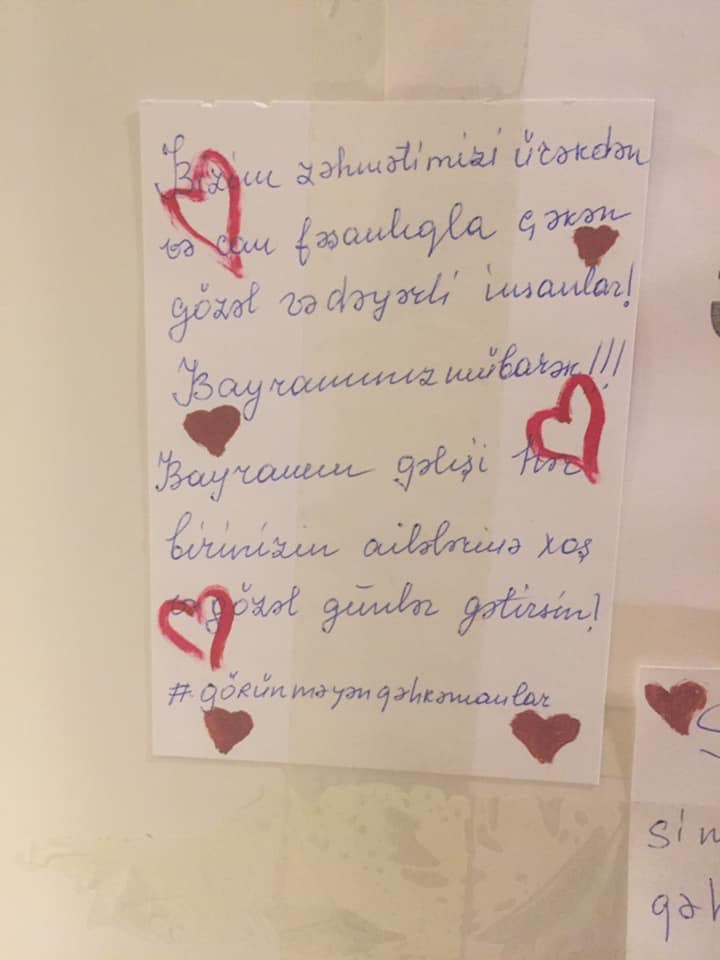 Bizim zəhmətimizi ürəkdən
və can fəşanlıqla çəkən
gözəl və dəyərli insanlar!
Bayramınız mübarək!!!
Bayramın gəlişi hər
birinizin ailələrinə xoş
və gözəl günlər gətirsin!
#görünməyənqəhrəmanlar
sin
qəh